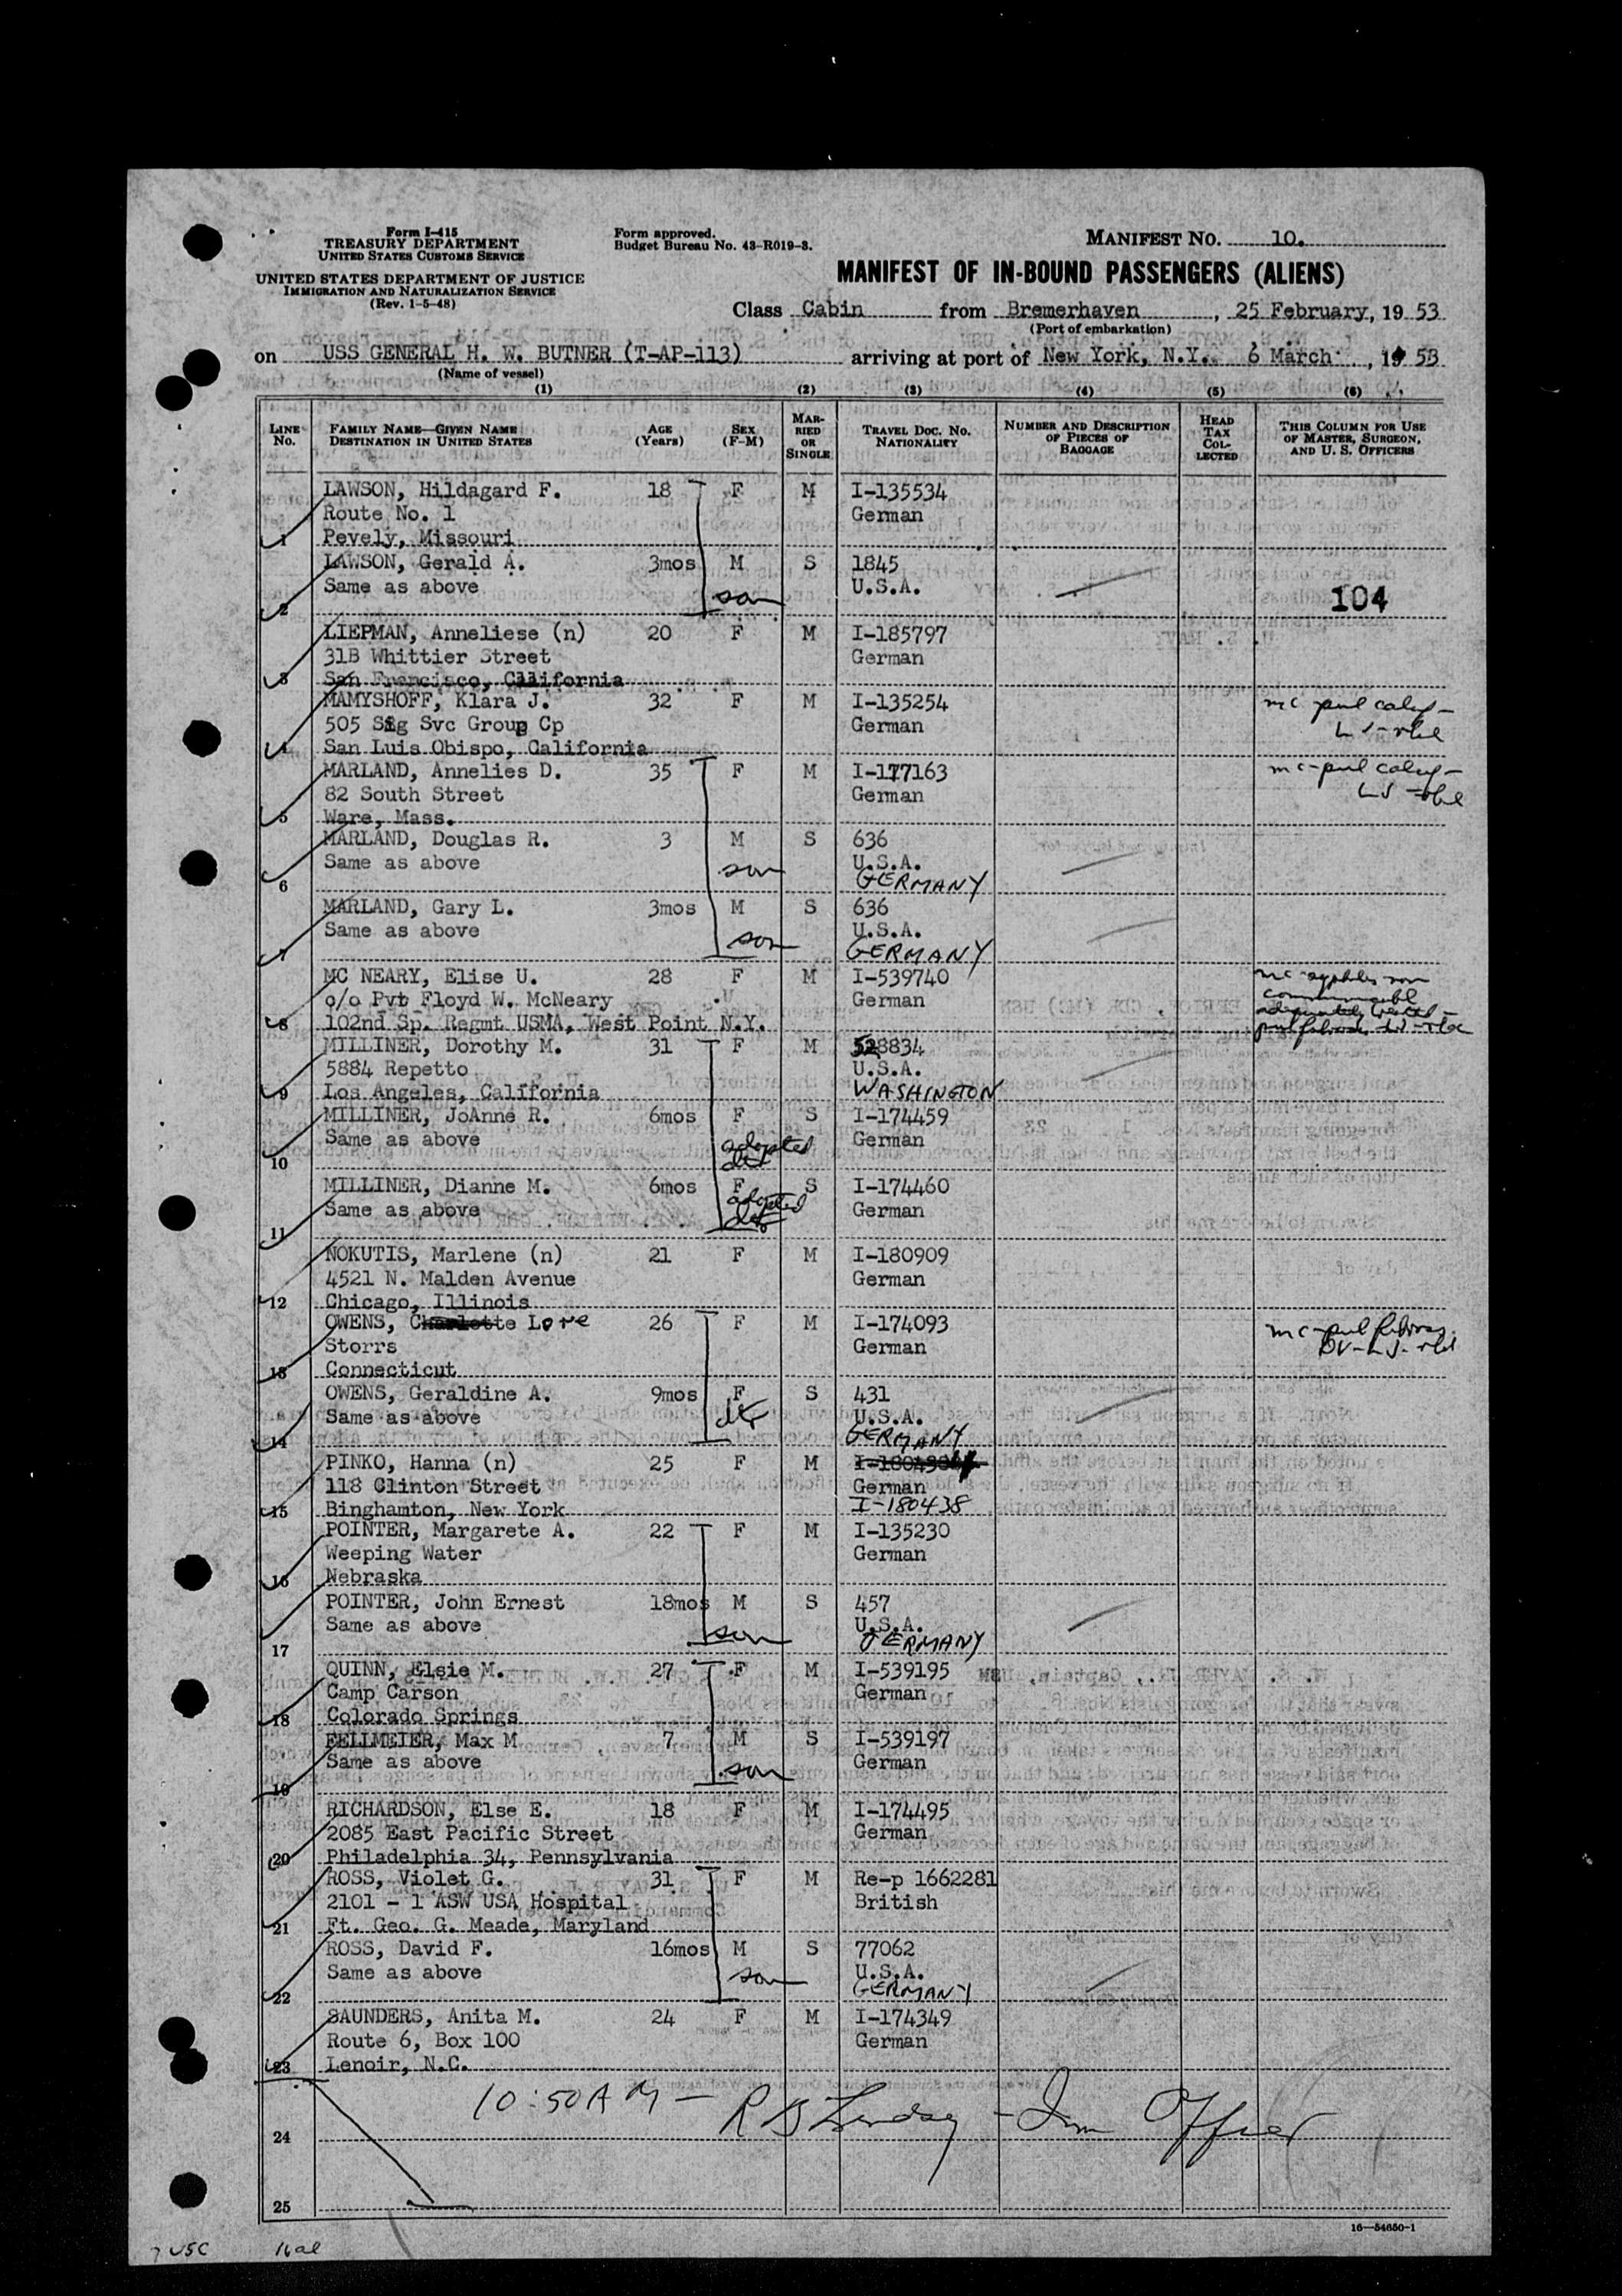 Form I-415
TREASURY DEPARTMENT
UNITED STATES CUSTOMS SERVICE
UNITED STATES DEPARTMENT OF JUSTICE
IMMIGRATION AND NATURALIZATION SERVICE
(Rev. 1-5-48)
Form approved.
Budget Bureau No. 43-R019-3.
MANIFEST NO. 10.
MANIFEST OF IN-BOUND PASSENGERS (ALIENS)
Class Cabin from Bremerhaven, 25 February, 19 53
(Port of embarkation)
on USS GENERAL H. W. BUTNER (T-AP-113) arriving at port of New York, N.Y. 6 March, 19 53
(Name of vessel)
(1) (2) (3) (4) (5) (6)
LINE No. FAMILY NAME—GIVEN NAME DESTINATION IN UNITED STATES AGE (Years) SEX (F-M) MARRIED OR SINGLE TRAVEL DOC. NO. NATIONALITY NUMBER AND DESCRIPTION OF PIECES OF BAGGAGE HEAD TAX COLLECTED THIS COLUMN FOR USE OF MASTER, SURGEON, AND U. S. OFFICERS
LAWSON, Hildagard F. 18 F M I-135534
Route No. 1 German
1 Pevely, Missouri
LAWSON, Gerald A. 3mos M S 1845
Same as above son U.S.A. 104
2
LIEPMAN, Anneliese (n) 20 F M I-185797
31B Whittier Street German
3 San Francisco, California
MAMYSHOFF, Klara J. 32 F M I-135254
505 Sig Svc Group Cp German
4 San Luis Obispo, California
MARLAND, Annelies D. 35 F M I-177163
82 South Street German
5 Ware, Mass.
MARLAND, Douglas R. 3 M S 636
Same as above son U.S.A.
6 GERMANY
MARLAND, Gary L. 3mos M S 636
Same as above son U.S.A.
7 GERMANY
MC NEARY, Elise U. 28 F M I-539740
c/o Pvt Floyd W. McNeary German
8 102nd Sp. Regmt USMA, West Point N.Y.
MILLINER, Dorothy M. 31 F M 528834
5884 Repetto U.S.A.
9 Los Angeles, California WASHINGTON
MILLINER, JoAnne R. 6mos F S I-174459
Same as above adopted dtr German
10
MILLINER, Dianne M. 6mos F S I-174460
Same as above adopted dtr German
11
NOKUTIS, Marlene (n) 21 F M I-180909
4521 N. Malden Avenue German
12 Chicago, Illinois
OWENS, Charlotte Lore 26 F M I-174093
Storrs German
13 Connecticut
OWENS, Geraldine A. 9mos F S 431
Same as above dtr U.S.A.
14 GERMANY
PINKO, Hanna (n) 25 F M
118 Clinton Street German
15 Binghamton, New York I-180438
POINTER, Margarete A. 22 F M I-135230
Weeping Water German
16 Nebraska
POINTER, John Ernest 18mos M S 457
Same as above son U.S.A.
17 GERMANY
QUINN, Elsie M. 27 F M I-539195
Camp Carson German
18 Colorado Springs
FELLMEIER, Max M 7 M S I-539197
Same as above son German
19
RICHARDSON, Else E. 18 F M I-174495
2085 East Pacific Street German
20 Philadelphia 34, Pennsylvania
ROSS, Violet G. 31 F M Re-p 1662281
2101 - 1 ASW USA Hospital British
21 Ft. Geo. G. Meade, Maryland
ROSS, David F. 16mos M S 77062
Same as above son U.S.A.
22 GERMANY
SAUNDERS, Anita M. 24 F M I-174349
Route 6, Box 100 German
23 Lenoir, N.C.
10:50 AM - R B Lindsay - Imm Officer
24
25
16—54650-1
7 USC 16 al